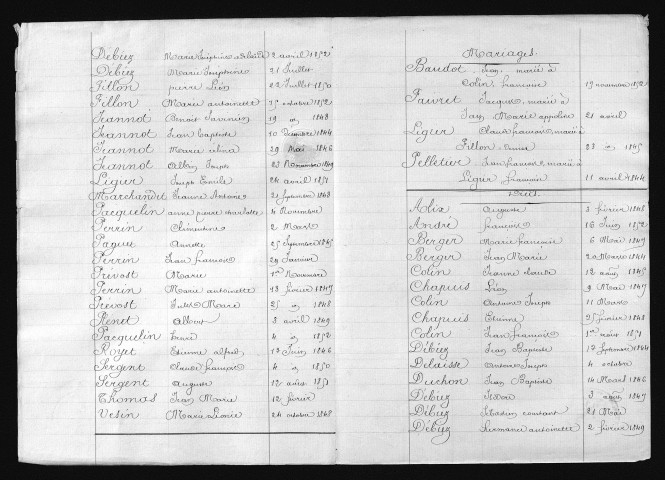 Débiez Marie 2 avril 1852
Débiez Marie 21 Juillet
Fillon pierre Léo 22 Juillet 1850
Fillon Marie antoinette 25 octobre 1852
Jeannot Benoit 19 1848
Jeannot Jean Baptiste 10 1844
Jeannot Marie 29 Mai 1846
Jeannot 23 Novembre 1849
Ligier Joseph Emile 24 avril 1851
Marchandet Jeanne Antoine 21 Septembre 1843
Pacquelin anne pierre 4 Novembre
Perrin Clémentine 2 Mars
Paquis Annette 25 Septembre 1845
Perrin Jean francois 29 Janvier
Prévost Marie 1er Novembre
Perrin Marie antoinette 13 février 1847
Prévost Jules Marie 25 1848
Plénot Albert 3 avril 1849
Pacquelin 4 1852
Royet Etienne alfred 17 Juin 1846
Sergent Claude francois 4 1850
Sergent auguste 12 aout 1851
Thomas Jean Marie 12 février
Vesin Marie Léonie 24 octobre 1848
Mariages
Baudot, Jean, marié à
Colin francoise 19 novembre 1852
Favret Jacques, marié à
Marie appoline 21 avril
Ligier Claude francois, marié à
Fillon 23 1845
Pelletier Jean francois marié à
Ligier francoise 11 avril 1844
Décès
Alix auguste 3 février 1848
André francois 16 Juin 1852
Berger Marie francoise 6 Mai 1849
Berger Jean Marie 20 Mars 1844
Colin Jeanne claude 12 aout 1845
Chapuis Léon 9 Mai 1847
Colin Antoine Joseph 11 Mars
Chapuis Etienne 25 février 1848
Colin Jean francois 1er aout 1851
Débiez Jean Baptiste 17 Septembre 1844
Delaisse Antoine Joseph 4 octobre
Duchon Jean Baptiste 14 Mars 1846
Débiez 3 aout 1847
Débiez constant 21 Mai
Débiez antoinette 2 février 1849